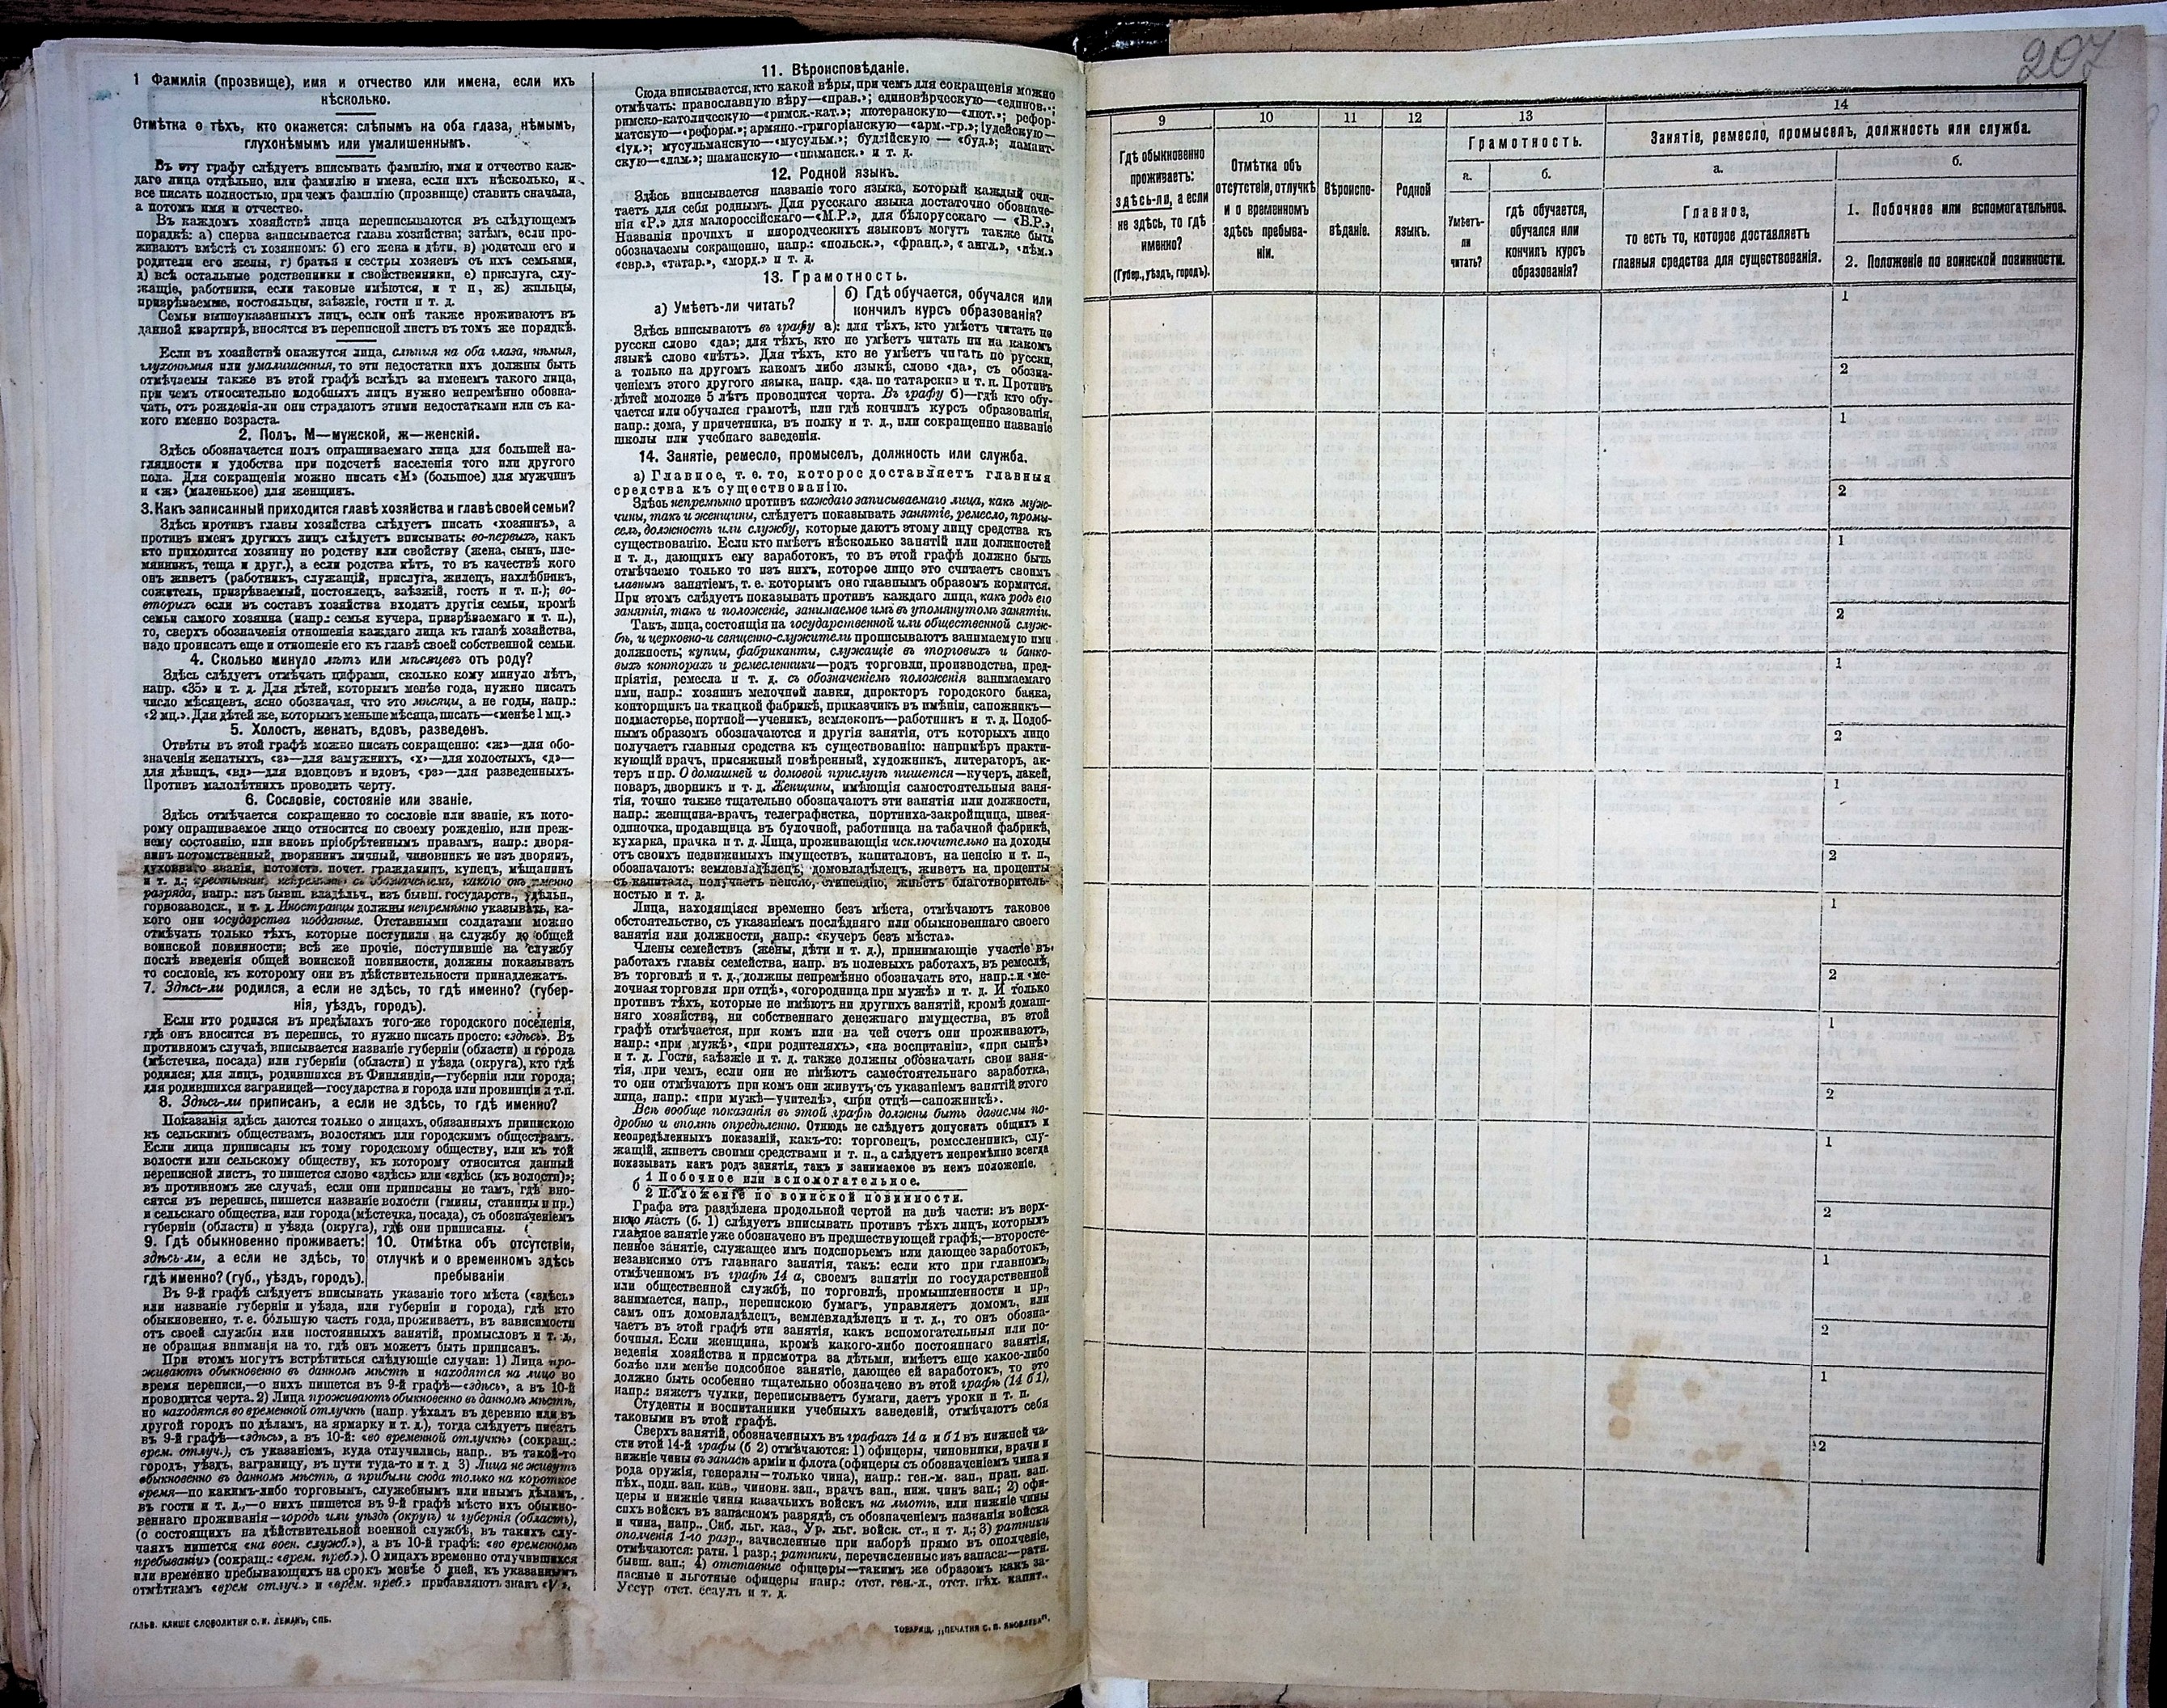 1 Фамилія (прозвище), имя и отчество или имена, если ихъ
нѣсколько.
Отмѣтка о тѣхъ, кто окажется: слѣпымъ на оба глаза, нѣмымъ,
глухонѣмымъ или умалишеннымъ.
Въ эту графу слѣдуетъ вписывать фамилію, имя и отчество каж-
даго лица отдѣльно, или фамилію и имена, если ихъ нѣсколько, и
все писать полностью, при чемъ фамилію (прозвище) ставить сначала,
а потомъ имя и отчество.
Въ каждомъ хозяйствѣ лица переписываются въ слѣдующемъ
порядкѣ: а) сперва записывается глава хозяйства; затѣмъ, если про-
живаютъ вмѣстѣ съ хозяиномъ: б) его жена и дѣти, в) родители его и
родители его жены, г) братья и сестры хозяевъ съ ихъ семьями,
д) всѣ остальные родственники и свойственники, е) прислуга, слу-
жащіе, работники, если таковые имѣются, и т п, ж) жильцы,
призрѣваемые, постояльцы, заѣзжіе, гости и т. д.
Семьи вышеуказанныхъ лицъ, если онѣ также проживаютъ въ
данной квартирѣ, вносятся въ переписной листъ въ томъ же порядкѣ.
Если въ хозяйствѣ окажутся лица, слѣпыя на оба глаза, нѣмыя,
глухонѣмыя или умалишенныя, то эти недостатки ихъ должны быть
отмѣчаемы также въ этой графѣ вслѣдъ за именемъ такого лица,
при чемъ относительно подобныхъ лицъ нужно непремѣнно обозна-
чать, отъ рожденія-ли они страдаютъ этими недостатками или съ ка-
кого именно возраста.
2. Полъ. М—мужской, ж—женскій.
Здѣсь обозначается полъ опрашиваемаго лица для большей на-
глядности и удобства при подсчетѣ населенія того или другого
пола. Для сокращенія можно писать «М» (большое) для мужчинъ
и «ж» (маленькое) для женщинъ.
3. Какъ записанный приходится главѣ хозяйства и главѣ своей семьи?
Здѣсь противъ главы хозяйства слѣдуетъ писать «хозяинъ», а
противъ именъ другихъ лицъ слѣдуетъ вписывать: во-первыхъ, какъ
кто приходится хозяину по родству или свойству (жена, сынъ, пле-
мянникъ, теща и друг.), а если родства нѣтъ, то въ качествѣ кого
онъ живетъ (работникъ, служащій, прислуга, жилецъ, нахлѣбникъ,
сожитель, призрѣваемый, постоялецъ, заѣзжій, гость и т. п.); во-
вторыхъ если въ составъ хозяйства входятъ другія семьи, кромѣ
семьи самого хозяина (напр.: семья кучера, призрѣваемаго и т. п.),
то, сверхъ обозначенія отношенія каждаго лица къ главѣ хозяйства,
надо прописать еще и отношеніе его къ главѣ своей собственной семьи.
4. Сколько минуло лѣтъ или мѣсяцевъ отъ роду?
Здѣсь слѣдуетъ отмѣчать цифрами, сколько кому минуло лѣтъ,
напр. «35» и т. д. Для дѣтей, которымъ менѣе года, нужно писать
число мѣсяцевъ, ясно обозначая, что это мѣсяцы, а не годы, напр.:
«2 мц.». Для дѣтей же, которымъ меньше мѣсяца, писать—«менѣе 1 мц.»
5. Холостъ, женатъ, вдовъ, разведенъ.
Отвѣты въ этой графѣ можно писать сокращенно: «ж»—для обо-
значенія женатыхъ, «з»—для замужнихъ, «х»—для холостыхъ, «д»—
для дѣвицъ, «вд»—для вдовцовъ и вдовъ, «рз»—для разведенныхъ.
Противъ малолѣтнихъ проводить черту.
6. Сословіе, состояніе или званіе.
Здѣсь отмѣчается сокращенно то сословіе или званіе, къ кото-
рому опрашиваемое лицо относится по своему рожденію, или преж-
нему состоянію, или вновь пріобрѣтеннымъ правамъ, напр.: дворя-
нинъ потомственный, дворянинъ личный, чиновникъ не изъ дворянъ,
духовнаго званія, потомств. почет. гражданинъ, купецъ, мѣщанинъ
и т. д.; крестьянинъ, непремѣнно съ обозначеніемъ, какого онъ именно
разряда, напр.: изъ бывш. владѣльч., изъ бывш. государств., удѣльн.,
горнозаводск., и т. д. Иностранцы должны непремѣнно указывать, ка-
кого они государства подданные. Отставными солдатами можно
отмѣчать только тѣхъ, которые поступили на службу до общей
воинской повинности; всѣ же прочіе, поступившіе на службу
послѣ введенія общей воинской повинности, должны показывать
то сословіе, къ которому они въ дѣйствительности принадлежатъ.
7. Здѣсь-ли родился, а если не здѣсь, то гдѣ именно? (губер-
нія, уѣздъ, городъ).
Если кто родился въ предѣлахъ того-же городского поселенія,
гдѣ онъ вносится въ перепись, то нужно писать просто: «здѣсь». Въ
противномъ случаѣ, вписывается названіе губерніи (области) и города
(мѣстечка, посада) или губерніи (области) и уѣзда (округа), кто гдѣ
родился; для лицъ, родившихся въ Финляндіи,—губерніи или города;
для родившихся заграницей—государства и города или провинціи и т.п.
8. Здѣсь-ли приписанъ, а если не здѣсь, то гдѣ именно?
Показанія здѣсь даются только о лицахъ, обязанныхъ припискою
къ сельскимъ обществамъ, волостямъ или городскимъ обществамъ.
Если лица приписаны къ тому городскому обществу, или къ той
волости или сельскому обществу, къ которому относится данный
переписной листъ, то пишется слово «здѣсь» или «здѣсь (къ волости)»;
въ противномъ же случаѣ, если они приписаны не тамъ, гдѣ вно-
сятся въ перепись, пишется названіе волости (гмины, станицы и пр.)
и сельскаго общества, или города (мѣстечка, посада), съ обозначеніемъ
губерніи (области) и уѣзда (округа), гдѣ они приписаны.
9. Гдѣ обыкновенно проживаетъ:
здѣсь-ли, а если не здѣсь, то
гдѣ именно? (губ., уѣздъ, городъ).
10. Отмѣтка объ отсутствіи,
отлучкѣ и о временномъ здѣсь
пребываніи
Въ 9-й графѣ слѣдуетъ вписывать указаніе того мѣста («здѣсь»
или названіе губерніи и уѣзда, или губерніи и города), гдѣ кто
обыкновенно, т. е. бо́льшую часть года, проживаетъ, въ зависимости
отъ своей службы или постоянныхъ занятій, промысловъ и т. д,
не обращая вниманія на то, гдѣ онъ можетъ быть приписанъ.
При этомъ могутъ встрѣтиться слѣдующіе случаи: 1) Лица про-
живаютъ обыкновенно въ данномъ мѣстѣ и находятся на лицо во
время переписи,—о нихъ пишется въ 9-й графѣ—«здѣсь», а въ 10-й
проводится черта. 2) Лица проживаютъ обыкновенно въ данномъ мѣстѣ,
но находятся во временной отлучкѣ (напр. уѣхалъ въ деревню или въ
другой городъ по дѣламъ, на ярмарку и т. д.), тогда слѣдуетъ писать
въ 9-й графѣ—«здѣсь», а въ 10-й: «во временной отлучкѣ» (сокращ.:
врем. отлуч.), съ указаніемъ, куда отлучились, напр.. въ такой-то
городъ, уѣздъ, заграницу, въ пути туда-то и т. д 3) Лица не живутъ
обыкновенно въ данномъ мѣстѣ, а прибыли сюда только на короткое
время—по какимъ-либо торговымъ, служебнымъ или инымъ дѣламъ,
въ гости и т. д.,—о нихъ пишется въ 9-й графѣ мѣсто ихъ обыкно-
веннаго проживанія—городъ или уѣздъ (округъ) и губернія (область),
(о состоящихъ на дѣйствительной военной службѣ, въ такихъ слу-
чаяхъ пишется «на воен. службѣ»), а въ 10-й графѣ: «во временномъ
пребываніи» (сокращ.: «врем. преб.»). О лицахъ временно отлучившихся
или временно пребывающихъ на срокъ менѣе 5 дней, къ указаннымъ
отмѣткамъ «врем отлуч.» и «врем. преб.» прибавляютъ знакъ «V».
ГАЛЬВ. КЛИШЕ СЛОВОЛИТНИ О. И. ЛЕМАНЪ, СПБ.
11. Вѣроисповѣданіе.
Сюда вписывается, кто какой вѣры, при чемъ для сокращенія можно
отмѣчать: православную вѣру—«прав.»; единовѣрческую—«единов.»;
римско-католическую—«римск.-кат.»; лютеранскую—«лют.»; рефор-
матскую—«реформ.»; армяно-григоріанскую—«арм.-гр.»; іудейскую—
«іуд.»; мусульманскую—«мусульм.»; буддійскую — «буд.»; ламаит-
скую—«лам.»; шаманскую—«шаманск.» и т. д.
12. Родной языкъ.
Здѣсь вписывается названіе того языка, который каждый счи-
таетъ для себя роднымъ. Для русскаго языка достаточно обозначе-
нія «Р.» для малороссійскаго—«М.Р.», для бѣлорусскаго — «Б.Р.».
Названія прочихъ и инородческихъ языковъ могутъ также быть
обозначаемы сокращенно, напр.: «польск.», «франц.», «англ.», «нѣм.»
«евр.», «татар.», «морд.» и т. д.
13. Грамотность.
а) Умѣетъ-ли читать?
б) Гдѣ обучается, обучался или
кончилъ курсъ образованія?
Здѣсь вписываютъ въ графу а): для тѣхъ, кто умѣетъ читать по
русски слово «да»; для тѣхъ, кто не умѣетъ читать ни на какомъ
языкѣ слово «нѣтъ». Для тѣхъ, кто не умѣетъ читать по русски,
а только на другомъ какомъ либо языкѣ, слово «да», съ обозна-
ченіемъ этого другого языка, напр. «да. по татарски» и т. п. Противъ
дѣтей моложе 5 лѣтъ проводится черта. Въ графу б)—гдѣ кто обу-
чается или обучался грамотѣ, или гдѣ кончилъ курсъ образованія,
напр.: дома, у причетника, въ полку и т. д., или сокращенно названіе
школы или учебнаго заведенія.
14. Занятіе, ремесло, промыселъ, должность или служба.
а) Главное, т. е. то, которое доставляетъ главныя
средства къ существованію.
Здѣсь непремѣнно противъ каждаго записываемаго лица, какъ муж-
чины, такъ и женщины, слѣдуетъ показывать занятіе, ремесло, промы-
селъ, должность или службу, которые даютъ этому лицу средства къ
существованію. Если кто имѣетъ нѣсколько занятій или должностей
и т. д., дающихъ ему заработокъ, то въ этой графѣ должно быть
отмѣчаемо только то изъ нихъ, которое лицо это считаетъ своимъ
главнымъ занятіемъ, т. е. которымъ оно главнымъ образомъ кормится.
При этомъ слѣдуетъ показывать противъ каждаго лица, какъ родъ его
занятія, такъ и положеніе, занимаемое имъ въ упомянутомъ занятіи.
Такъ, лица, состоящія на государственной или общественной служ-
бѣ, и церковно-и священно-служители прописываютъ занимаемую ими
должность; купцы, фабриканты, служащіе въ торговыхъ и банко-
выхъ конторахъ и ремесленники—родъ торговли, производства, пред-
пріятія, ремесла и т. д. съ обозначеніемъ положенія занимаемаго
ими, напр.: хозяинъ мелочной лавки, директоръ городского банка,
конторщикъ на ткацкой фабрикѣ, приказчикъ въ имѣніи, сапожникъ—
подмастерье, портной—ученикъ, землекопъ—работникъ и т. д. Подоб-
нымъ образомъ обозначаются и другія занятія, отъ которыхъ лицо
получаетъ главныя средства къ существованію: напримѣръ практи-
кующій врачъ, присяжный повѣренный, художникъ, литераторъ, ак-
теръ и пр. О домашней и домовой прислугѣ пишется—кучеръ, лакей,
поваръ, дворникъ и т. д. Женщины, имѣющія самостоятельныя заня-
тія, точно также тщательно обозначаютъ эти занятія или должности,
напр.: женщина-врачъ, телеграфистка, портниха-закройщица, швея-
одиночка, продавщица въ булочной, работница на табачной фабрикѣ,
кухарка, прачка и т. д. Лица, проживающія исключительно на доходы
отъ своихъ недвижимыхъ имуществъ, капиталовъ, на пенсію и т. п.,
обозначаютъ: землевладѣлецъ, домовладѣлецъ, живетъ на проценты
съ капитала, получаетъ пенсію, стипендію, живетъ благотворитель-
ностью и т. д.
Лица, находящіяся временно безъ мѣста, отмѣчаютъ таковое
обстоятельство, съ указаніемъ послѣдняго или обыкновеннаго своего
занятія или должности, напр.: «кучеръ безъ мѣста».
Члены семействъ (жены, дѣти и т. д.), принимающіе участіе въ
работахъ главы семейства, напр. въ полевыхъ работахъ, въ ремеслѣ,
въ торговлѣ и т. д., должны непремѣнно обозначать это, напр.: «ме-
лочная торговля при отцѣ», «огородница при мужѣ» и т. д. И только
противъ тѣхъ, которые не имѣютъ ни другихъ занятій, кромѣ домаш-
няго хозяйства, ни собственнаго денежнаго имущества, въ этой
графѣ отмѣчается, при комъ или на чей счетъ они проживаютъ,
напр.: «при мужѣ», «при родителяхъ», «на воспитаніи», «при сынѣ»
и т. д. Гости, заѣзжіе и т. д. также должны обозначать свои заня-
тія, при чемъ, если они не имѣютъ самостоятельнаго заработка,
то они отмѣчаютъ при комъ они живутъ, съ указаніемъ занятій этого
лица, напр.: «при мужѣ—учителѣ», «при отцѣ—сапожникѣ».
Всѣ вообще показанія въ этой графѣ должны быть даваемы по-
дробно и вполнѣ опредѣленно. Отнюдь не слѣдуетъ допускать общихъ и
неопредѣленныхъ показаній, какъ-то: торговецъ, ремесленникъ, слу-
жащій, живетъ своими средствами и т. п., а слѣдуетъ непремѣнно всегда
показывать какъ родъ занятія, такъ и занимаемое въ немъ положеніе.
б 1 Побочное или вспомогательное.
2 Положеніе по воинской повинности.
Графа эта раздѣлена продольной чертой на двѣ части: въ верх-
нюю часть (б. 1) слѣдуетъ вписывать противъ тѣхъ лицъ, которыхъ
главное занятіе уже обозначено въ предшествующей графѣ,—второсте-
пенное занятіе, служащее имъ подспорьемъ или дающее заработокъ,
независимо отъ главнаго занятія, такъ: если кто при главномъ,
отмѣченномъ въ графѣ 14 а, своемъ занятіи по государственной
или общественной службѣ, по торговлѣ, промышленности и пр.,
занимается, напр., перепискою бумагъ, управляетъ домомъ, или
самъ онъ домовладѣлецъ, землевладѣлецъ и т. д., то онъ обозна-
чаетъ въ этой графѣ эти занятія, какъ вспомогательныя или по-
бочныя. Если женщина, кромѣ какого-либо постояннаго занятія,
веденія хозяйства и присмотра за дѣтьми, имѣетъ еще какое-либо
болѣе или менѣе подсобное занятіе, дающее ей заработокъ, то это
должно быть особенно тщательно обозначено въ этой графѣ (14 б1),
напр.: вяжетъ чулки, переписываетъ бумаги, даетъ уроки и т. п.
Студенты и воспитанники учебныхъ заведеній, отмѣчаютъ себя
таковыми въ этой графѣ.
Сверхъ занятій, обозначенныхъ въ графахъ 14 а и б1 въ нижней ча-
сти этой 14-й графы (б 2) отмѣчаются: 1) офицеры, чиновники, врачи и
нижніе чины въ запасѣ арміи и флота (офицеры съ обозначеніемъ чина и
рода оружія, генералы—только чина), напр.: ген.-м. зап., прап. зап.
пѣх., подп. зап. кав., чиновн. зап., врачъ зап., ниж. чинъ зап.; 2) офи-
церы и нижніе чины казачьихъ войскъ на льготѣ, или нижніе чины
сихъ войскъ въ запасномъ разрядѣ, съ обозначеніемъ названія войска
и чина, напр.. Сиб. льг. каз., Ур. льг. войск. ст., и т. д.; 3) ратники
ополченія 1-го разр., зачисленные при наборѣ прямо въ ополченіе,
отмѣчаются: ратн. 1 разр.; ратники, перечисленные изъ запаса:—ратн.
бывш. зап.; 4) отставные офицеры—такимъ же образомъ какъ за-
пасные и льготные офицеры напр.: отст. ген.-л., отст. пѣх. капит.,
Уссур отст. есаулъ и т. д.
ТОВАРИЩ. „ПЕЧАТНЯ С. П. ЯКОВЛЕВА".
207
9
10
11
12
13
14
Гдѣ обыкновенно
проживаетъ:
здѣсь-ли, а если
не здѣсь, то гдѣ
именно?
(Губер., уѣздъ, городъ).
Отмѣтка объ
отсутствіи, отлучкѣ
и о временномъ
здѣсь пребыва-
ніи.
Вѣроиспо-
вѣданіе.
Родной
языкъ.
Грамотность.
а.
б.
Умѣетъ-
ли
читать?
гдѣ обучается,
обучался или
кончилъ курсъ
образованія?
Занятіе, ремесло, промыселъ, должность или служба.
а.
б.
Главное,
то есть то, которое доставляетъ
главныя средства для существованія.
1. Побочное или вспомогательное.
2. Положеніе по воинской повинности.
1
2
1
2
1
2
1
2
1
2
1
2
1
2
1
2
1
2
1
2